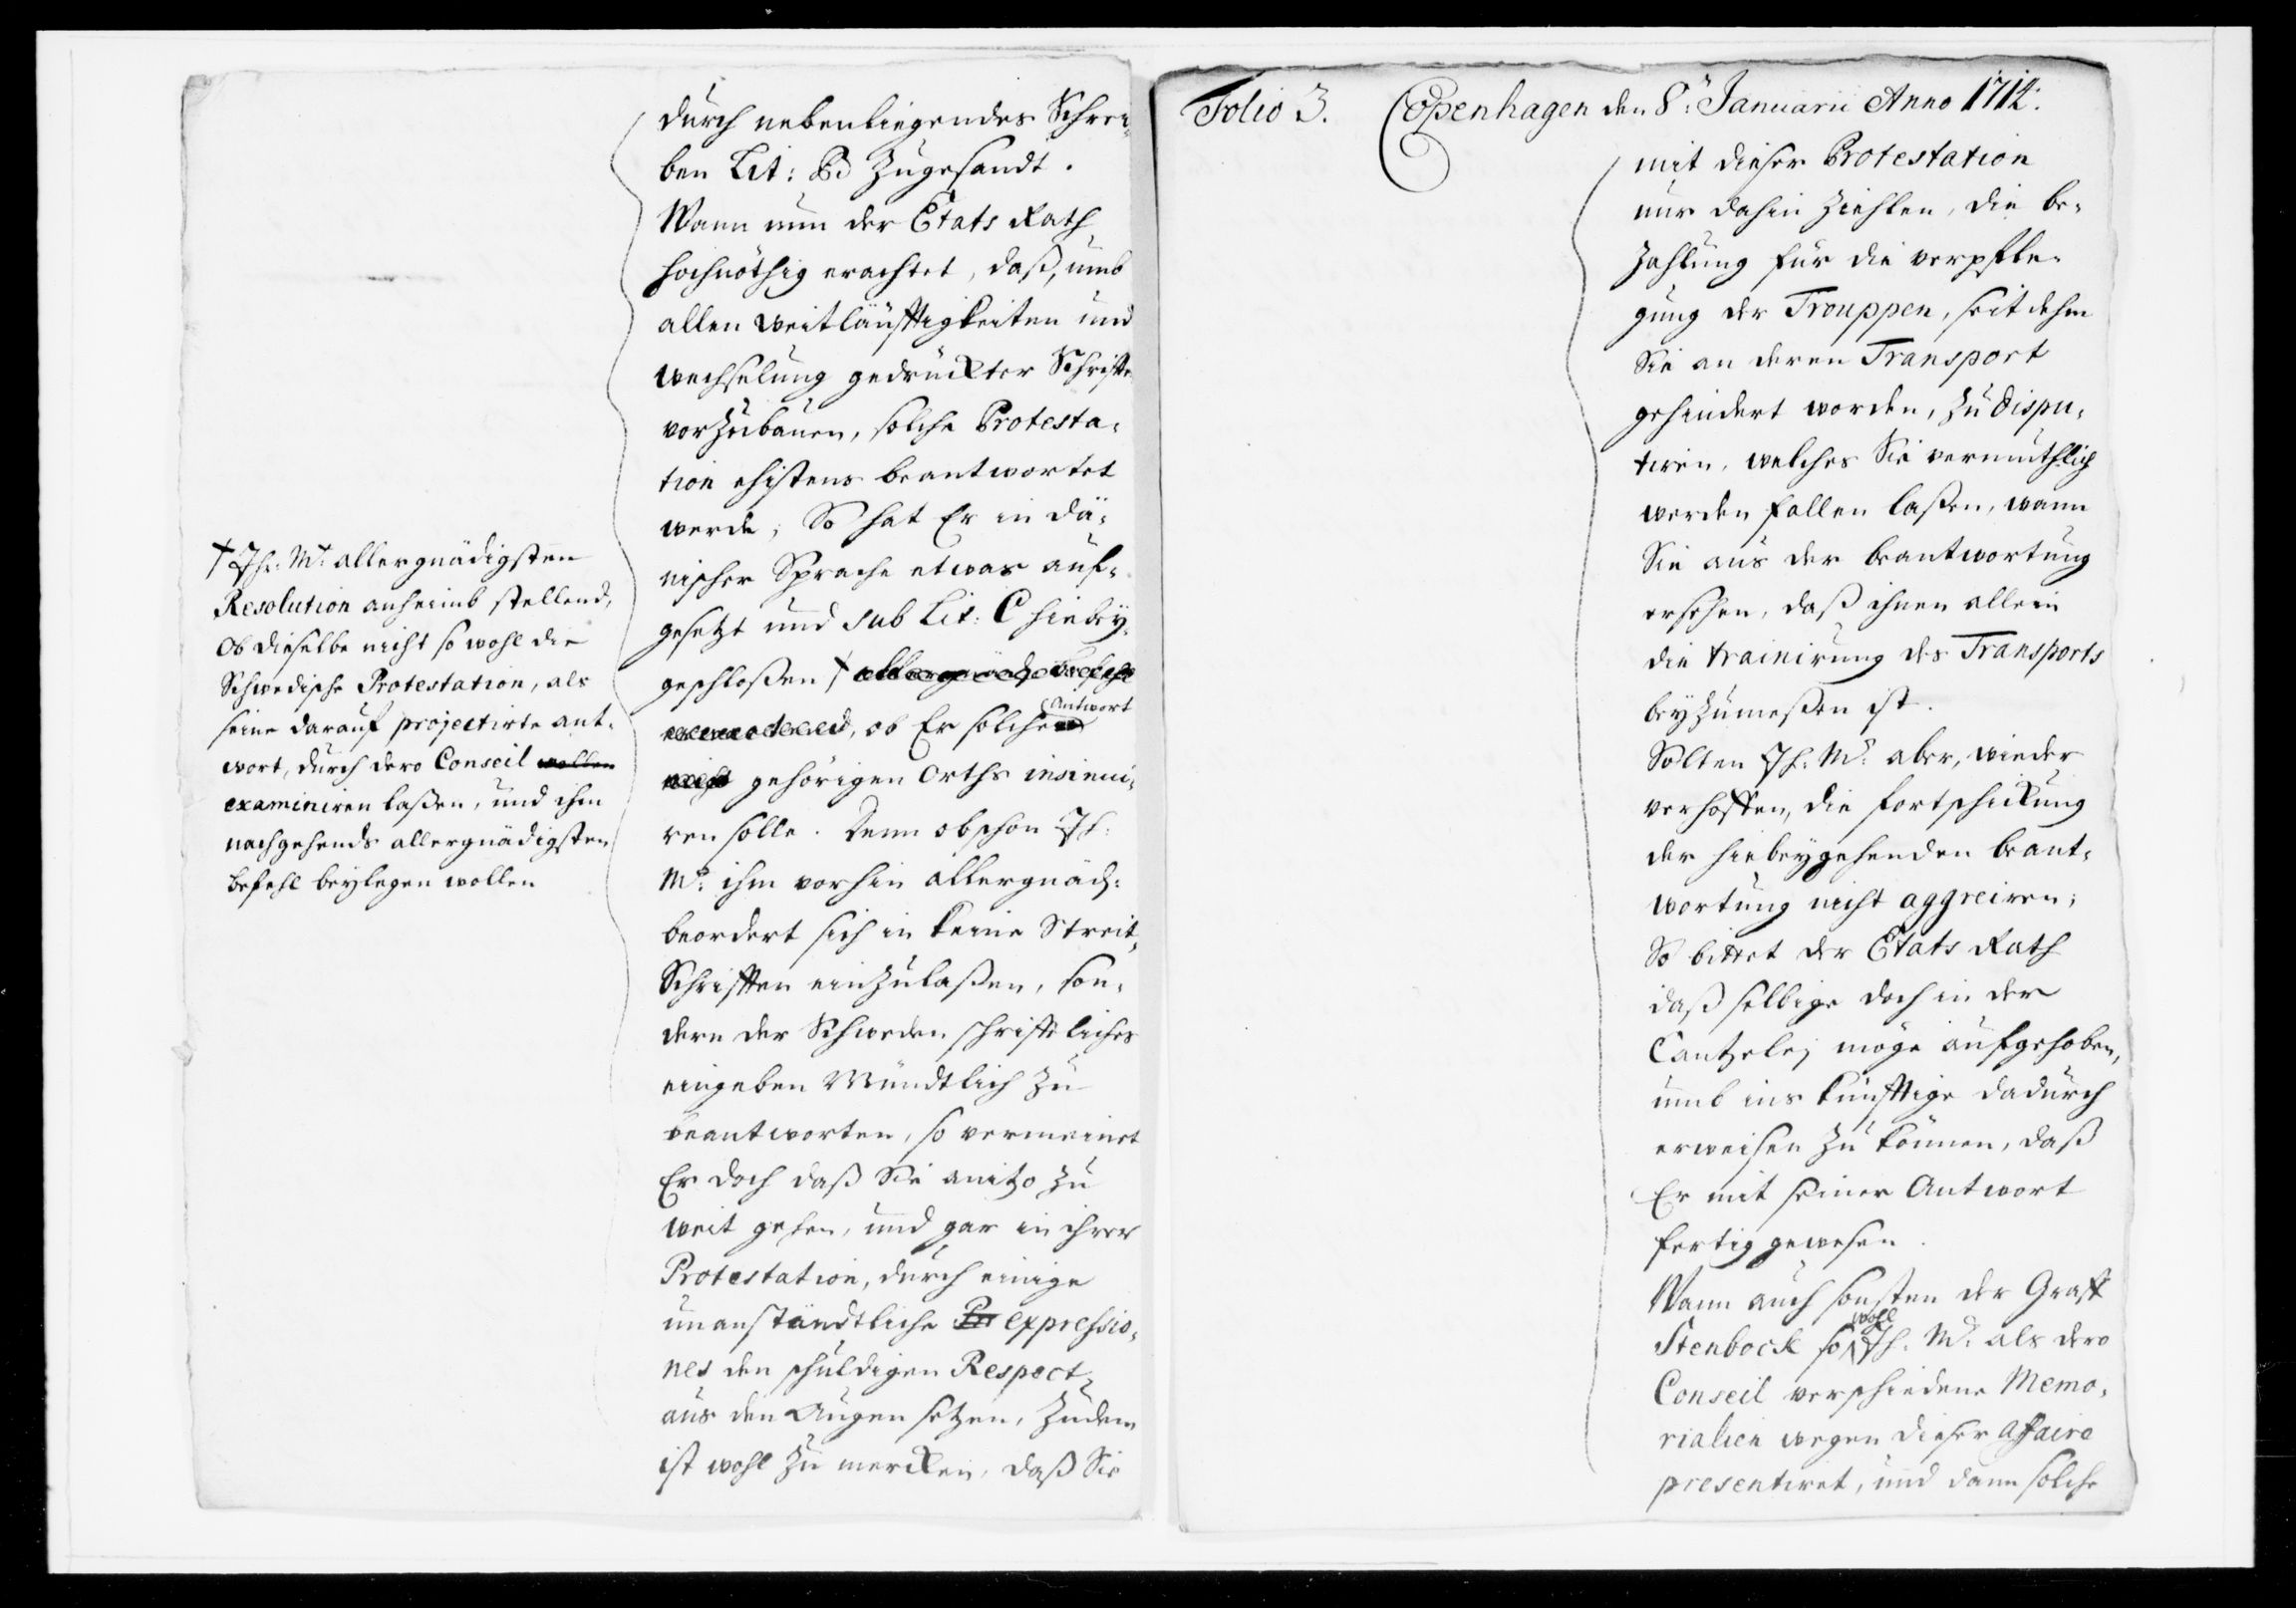 durch nebenliegendes Schrei-
ben Lit: B zugesandt.
Wann nun der Etats Rath
hochnöthig erachtet, daß, umb
allen weitläufftigkeiten und
wechselung gedruckter Schriffte
vorzubauen, solche Protesta-
tion ehistens beantwortet
werde; So hat Er in dä-
nischer Sprache etwas auf-
gesetzt und sub Lit: C hiebey
geschloßen †
Antwort
ob Er solche
gehörigen Orths insinui-
ren solle. Denn obschon Ih:
Mt: ihm vorhin allergnäd:
beordert sich in keine Streit-
Schrifften einzulaßen, son-
dern der Schweden schrifftliches
eingeben Mündtlich zu
beantworten, so vermeinet
Er doch daß Sie anitzo zu
weit gehen, und gar in ihrer
Protestation, durch einige
unanständtliche expressio-
nes den schuldigen Respect
aus den Augen setzen, Zudem
ist wohl zu mercken, daß Sie
† Ih: Mt: allergnädigsten
Resolution anheimb stellend,
Ob dieselbe nicht so wohl die
Schwedische Protestation, als
seine darauf projectirte ant-
wort, durch dero Conseil wollen
examiniren laßen, und ihm
nachgehends allergnädigsten
befehl beylegen wollen
Folio 3. Copenhagen den 8: Januarii Anno 1714:
mit dieser Protestation
nur dahin ziehlen, die be-
zahlung für die verpfle-
gung der Trouppen, seit dehm
Sie an deren Transport
gehindert worden, zu dispu-
tiren, welches Sie vermuthlich
werden fallen laßen, wann
Sie aus der beantwortung
ersehen, daß ihnen allein
die trainirung des Transports
beyzumeßen ist.
Solten Ih: Mt: aber, wieder
verhoffen, die fortschickung
der hiebeygehenden beant-
wortung nicht aggreiren;
So bittet der Etats Rath
daß selbige doch in der
Cantzeley möge aufgehoben,
umb ins künfftige dadurch
erweisen zu können, daß
Er mit seiner Antwort
fertig gewesen.
Wann auch sonsten der Graff
Stenbock so wohl Ih: Mt: als dero
Conseil verschiedene Memo-
rialien wegen dieser affaire
presentiret, und dann solche